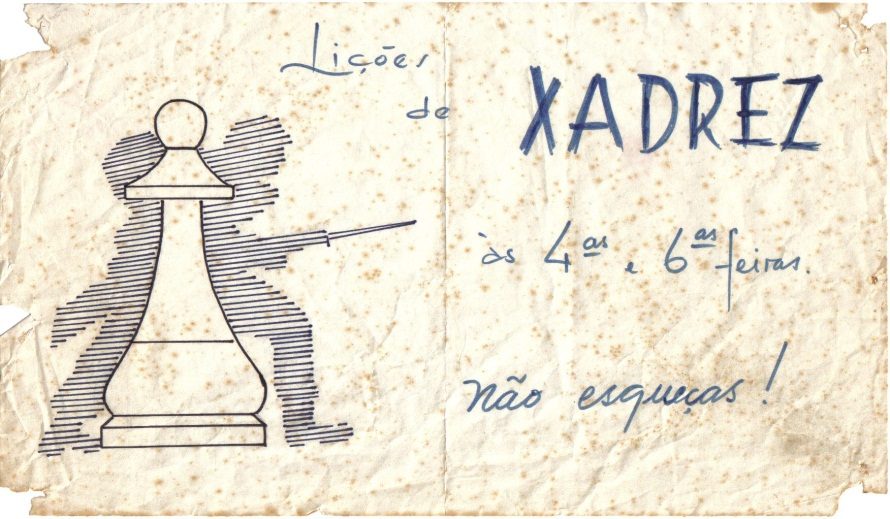 Lições
de XADREZ
às 4as e 6as feiras.
não esqueças!